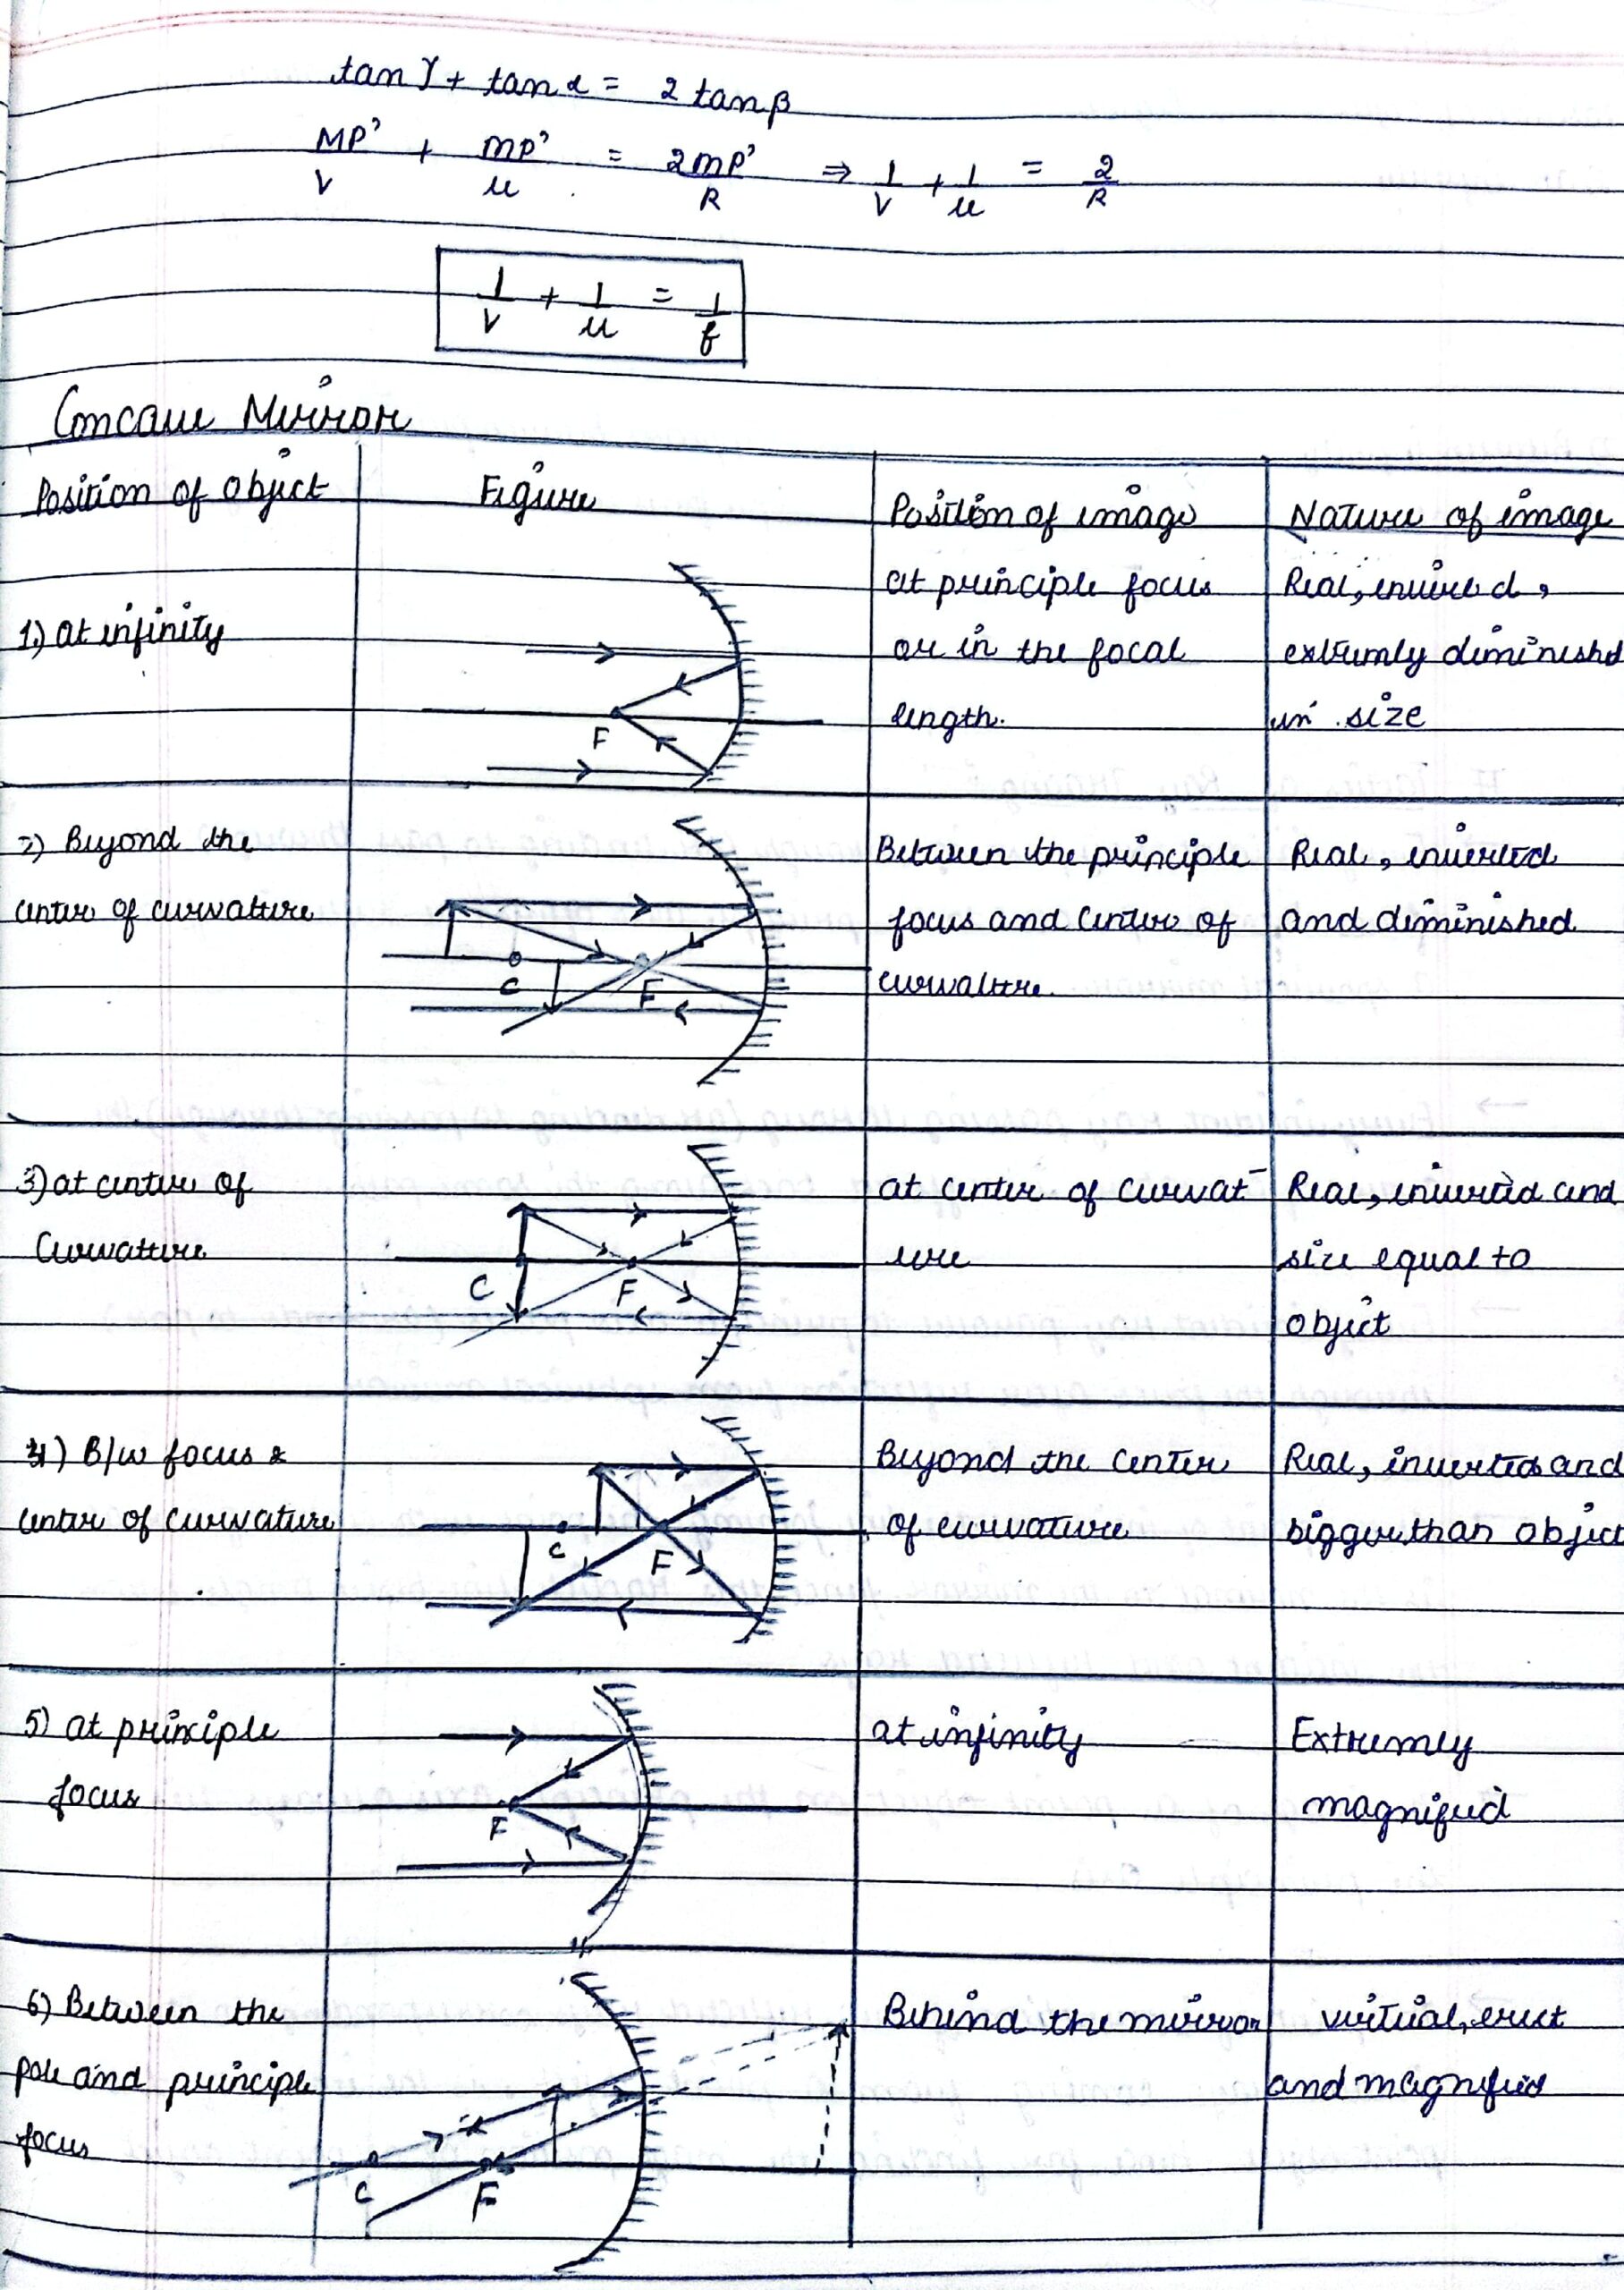 tan γ + tan α = 2 tan β
MP'/V + MP'/u = 2MP'/R ⇒ 1/V + 1/u = 2/R
1/V + 1/u = 1/f
Concave Mirror
Position of object
Figure
Position of image
Nature of image
1.) at infinity
F
at principle focus
or in the focal
length.
Real, invired,
extremly diminishd
in size
2) Beyond the
center of curvature
C
F
Between the principle
focus and center of
curvature.
Real, inverted
and diminished
3) at center of
Curvature
C
F
at center of curvat-
ure
Real, inverted and
size equal to
object
4) B/w focus &
center of curvature
C
F
Beyond the center
of curvature
Real, inverted and
bigger than object
5) at principle
focus
F
at infinity
Extremely
magnified
6) Between the
pole and principle
focus
C
F
Behind the mirror
virtual, erect
and magnified